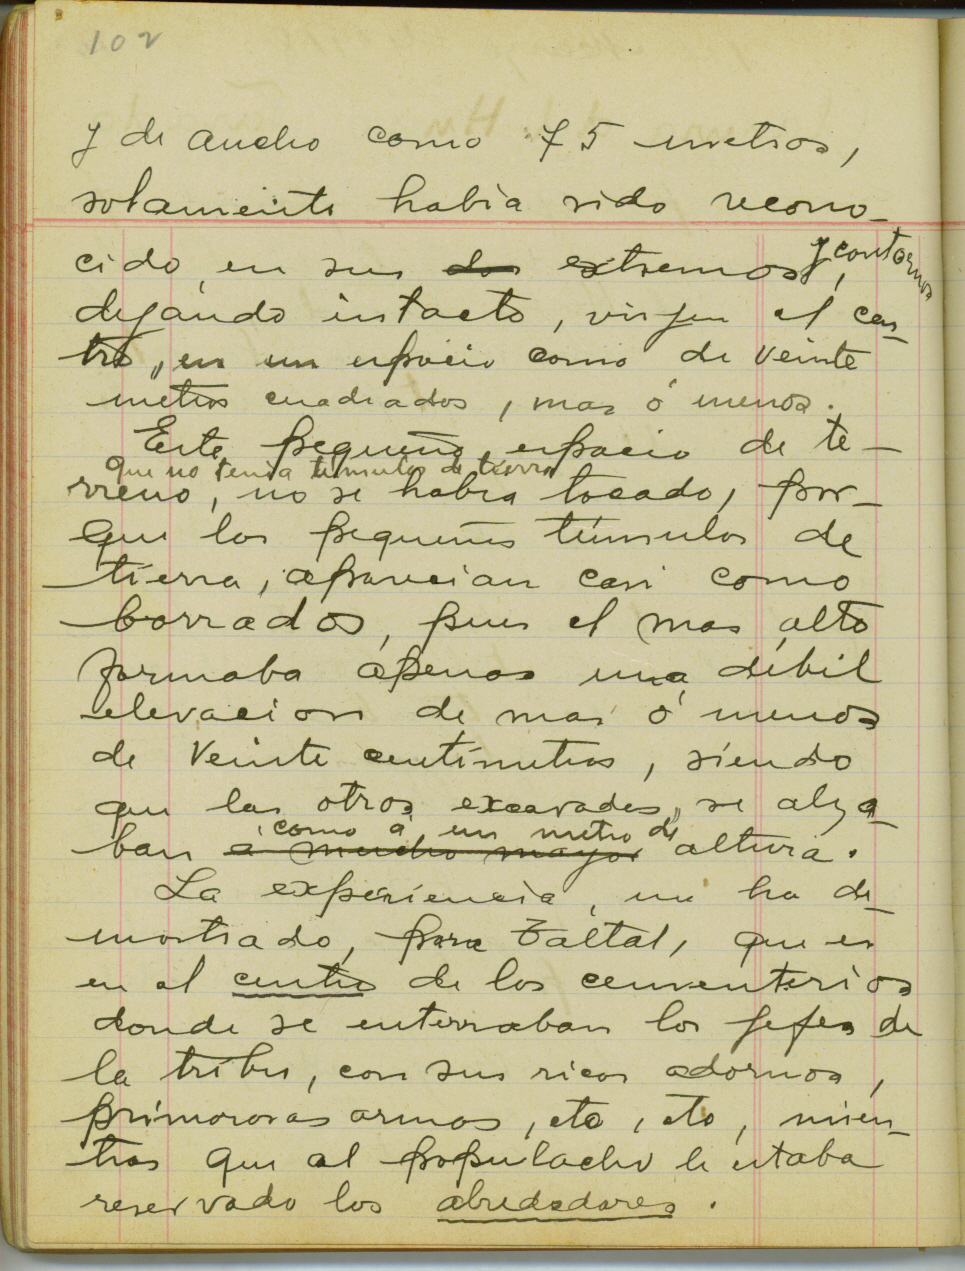 102
y de ancho como 75 metros,
solamente había sido recono-
cido, en sus dos extremos y contornos,
dejando intacto, virjen el cen-
tro, en un espacio como de veinte
metros cuadrados, mas ó menos.
Este pequeño espacio de te-
que no tenia túmulos de tierra
rreno, no se habia tocado, por-
que los pequeños túmulos de
tierra, aparecian casi como
borrados, pues el mas alto
formaba ápenas una débil
elevacion de mas ó menos
de veinte centímetros, siendo
que los otros excavados, se alza-
como á un metro de
ban á mucho mayor altura.
La experiencia, me ha de-
mostrado, para Taltal, que es
en el centro de los cementerios
donde se enterraban los jefes de
la tribu, con sus ricos adornos,
primorosas armas, etc, etc, mién-
tras que al populacho le estaba
reservado los alrededores.